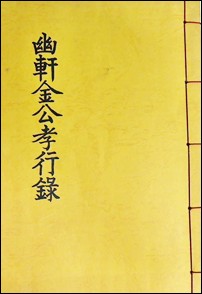 幽軒金公孝行錄